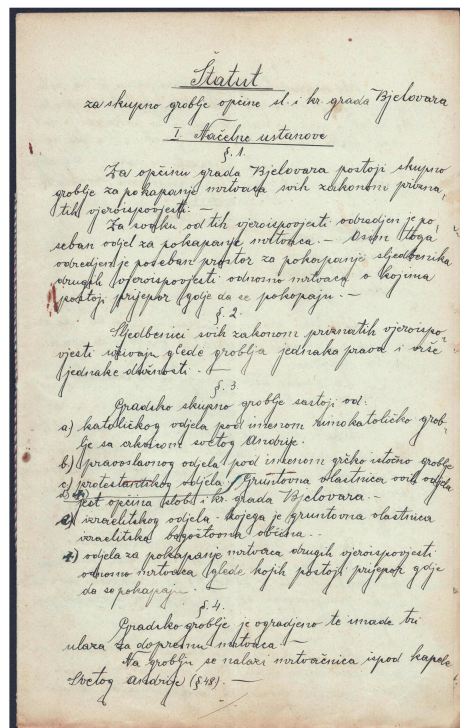 Štatut
za skupno groblje općine sl. i kr. grada Bjelovara
I. Načelne ustanove
§. 1.
Za općinu grada Bjelovara postoji skupno
groblje za pokapanje mrtvaca svih zakonom prizna,
tih vjeroispovjesti. —
Za svaku od tih vjeroispovjesti odredjen je po,
seban odjel za pokapanje mrtvaca. — Osim toga
odredjen je poseban prostor za pokapanje sljedbenika
drugih vjeroispovjesti odnosno mrtvaca o kojima
postoji prijepor gdje da se pokopaju. —
§. 2.
Sljedbenici svih zakonom priznatih vjeroispo,
vjesti uživaju glede groblja jednaka prava i vrše
jednake dužnosti. —
§. 3.
Gradsko skupno groblje sastoji od:
a) katoličkog odjela pod imenom rimokatoličko grob,
lje sa crkvicom svetog Andrije.
b) pravoslavnog odjela pod imenom grčko istočno groblje
c) protestantskog odjela. Gruntovna vlastnica ovih odjela
jest općina slob. i kr. grada Bjelovara. —
d) izraelitskog odjela kojega je gruntovna vlastnica
izraelitska bogoštovna općina. -
e) odjela za pokapanje mrtvaca drugih vjeroispovjesti
odnosno mrtvaca glede kojih postoji prijepor gdje
da se pokapaju. —
§. 4.
Gradsko groblje je ogradjeno te imade tri
ulaza za dopremu mrtvaca. —
Na groblju se nalazi mrtvačnica ispod kapele
Svetog Andrije (§ 48). —